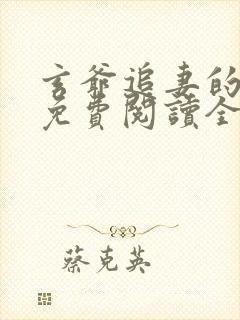 玄爺追妻的
免費閱讀全
蔡克英